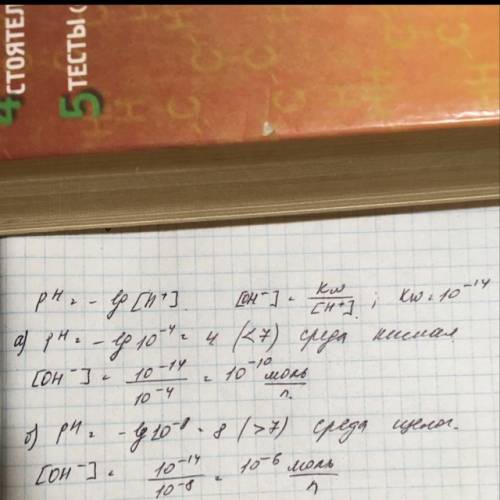 4 СТОЯТЕЛ
5 ТЕСТЫ
pH = - lg [H⁺]. [OH⁻] = Kw/[H⁺] ; Kw = 10⁻¹⁴
а) pH = - lg 10⁻⁴ = 4 (<7) среда кислая
[OH⁻] = 10⁻¹⁴/10⁻⁴ = 10⁻¹⁰ моль/л.
б) pH = - lg 10⁻⁸ = 8 (>7) среда щелоч.
[OH⁻] = 10⁻¹⁴/10⁻⁸ = 10⁻⁶ моль/л